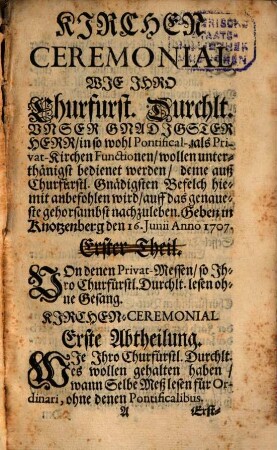 KIRCHEN
CEREMONIAL
WIE IHRO
Churfürst. Durchlt.
VNSER GNÄDIGSTER
HERR/ in so wohl Pontifical-, als Pri-
vat-Kirchen Functionen/ wollen unter-
thänigst bedienet werden/ deme auß
Churfürstl. Gnädigsten Befelch hie-
mit anbefohlen wird/ auff das genaue-
ste gehorsambst nachzuleben. Geben in
Knotzenberg den 16. Junii Anno 1707.
Erster Theil.
VOn denen Privat-Messen/ so Ih-
ro Churfürstl. Durchlt. lesen oh-
ne Gesang.
KIRCHEN-CEREMONIAL
Erste Abtheilung.
WJe Ihro Churfürstl. Durchlt.
es wollen gehalten haben /
wann Selbe Meß lesen für Or-
dinari, ohne denen Pontificalibus.
A Erst-